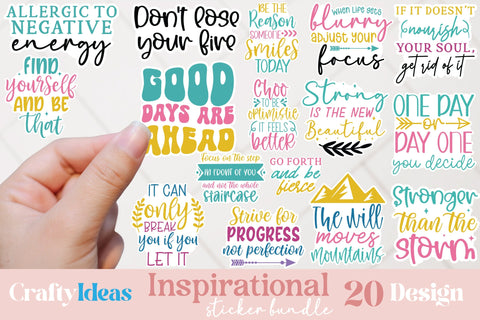 ALLERGIC TO
NEGATIVE
energy
Don't lose
your fire
BE THE
REASON
SOMEONE
Smiles
TODAY
when life gets
blurry
adjust your
focus
IF IT DOESN'T
nourish
YOUR SOUL,
get rid of it
FIND
yourself
AND BE
that
GOOD
DAYS ARE
AHEAD
Choo
TO BE
optimistic
IT FEELS
better
Strong
IS THE NEW
Beautiful
ONE DAY
or
DAY ONE
you decide
focus on the step
IN FRONT OF YOU
and not the whole
staircase
GO FORTH
and be
fierce
IT CAN
only
BREAK
YOU IF YOU
LET IT
Strive for
PROGRESS
not perfection
The will
moves
mountains
Stronger
than the
storm
CraftyIdeas
Inspirational
sticker bundle
20 Design